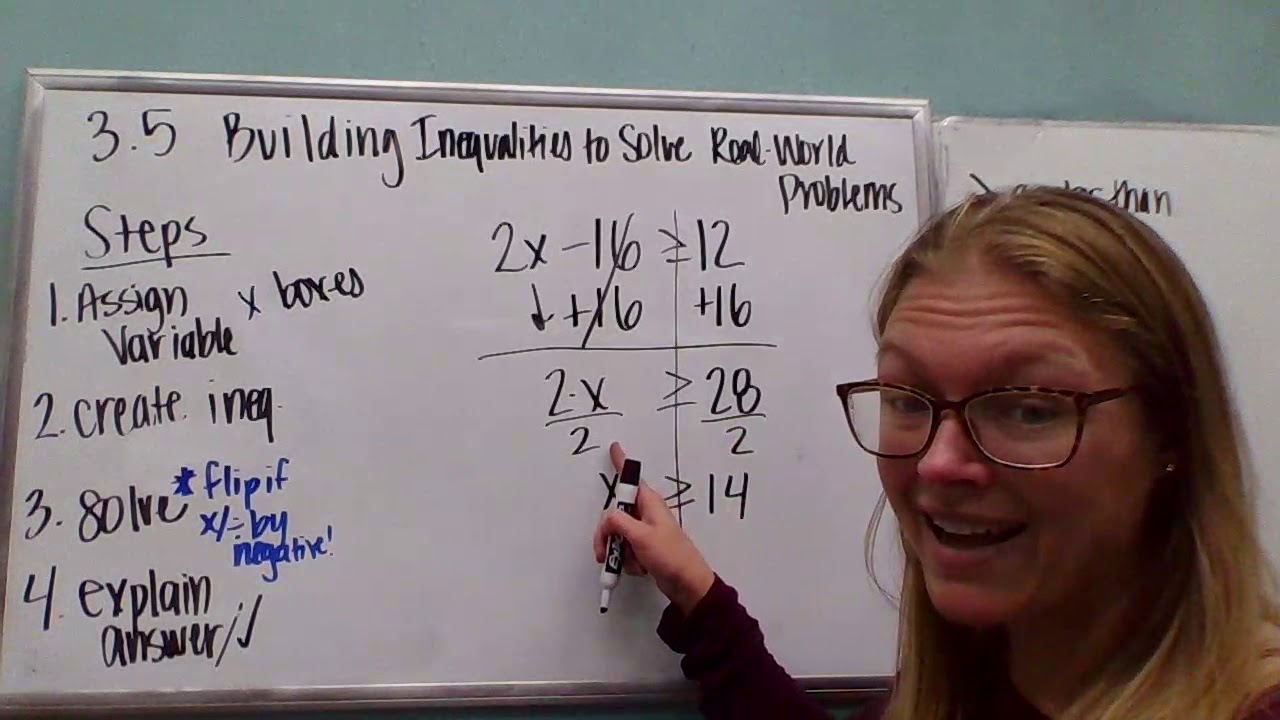 3.5 Building Inequalities to Solve Real-World
Problems
Steps
1. Assign x boxes
Variable
2. create ineq.
3. Solve * flip if
x/÷ by
negative!
4. explain
answer/✓
2x - 16 ≥ 12
↓ + 16 +16
2·x ≥ 28
2 2
x ≥ 14
> than
EXPO